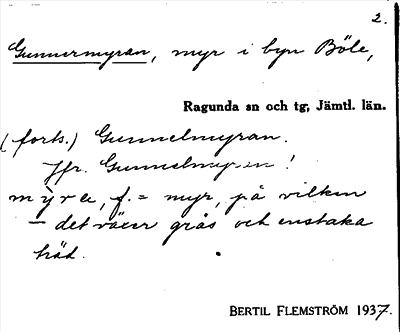 2.
Gunnermyran, myr i byn Böle,
Ragunda sn och tg, Jämtl. län.
(forts.) Gunnelmyran.
Jfr. Gunnelmyren!
mỳra, f. = myr, på vilken
– det växer gräs och enstaka
träd.
BERTIL FLEMSTRÖM 1937.